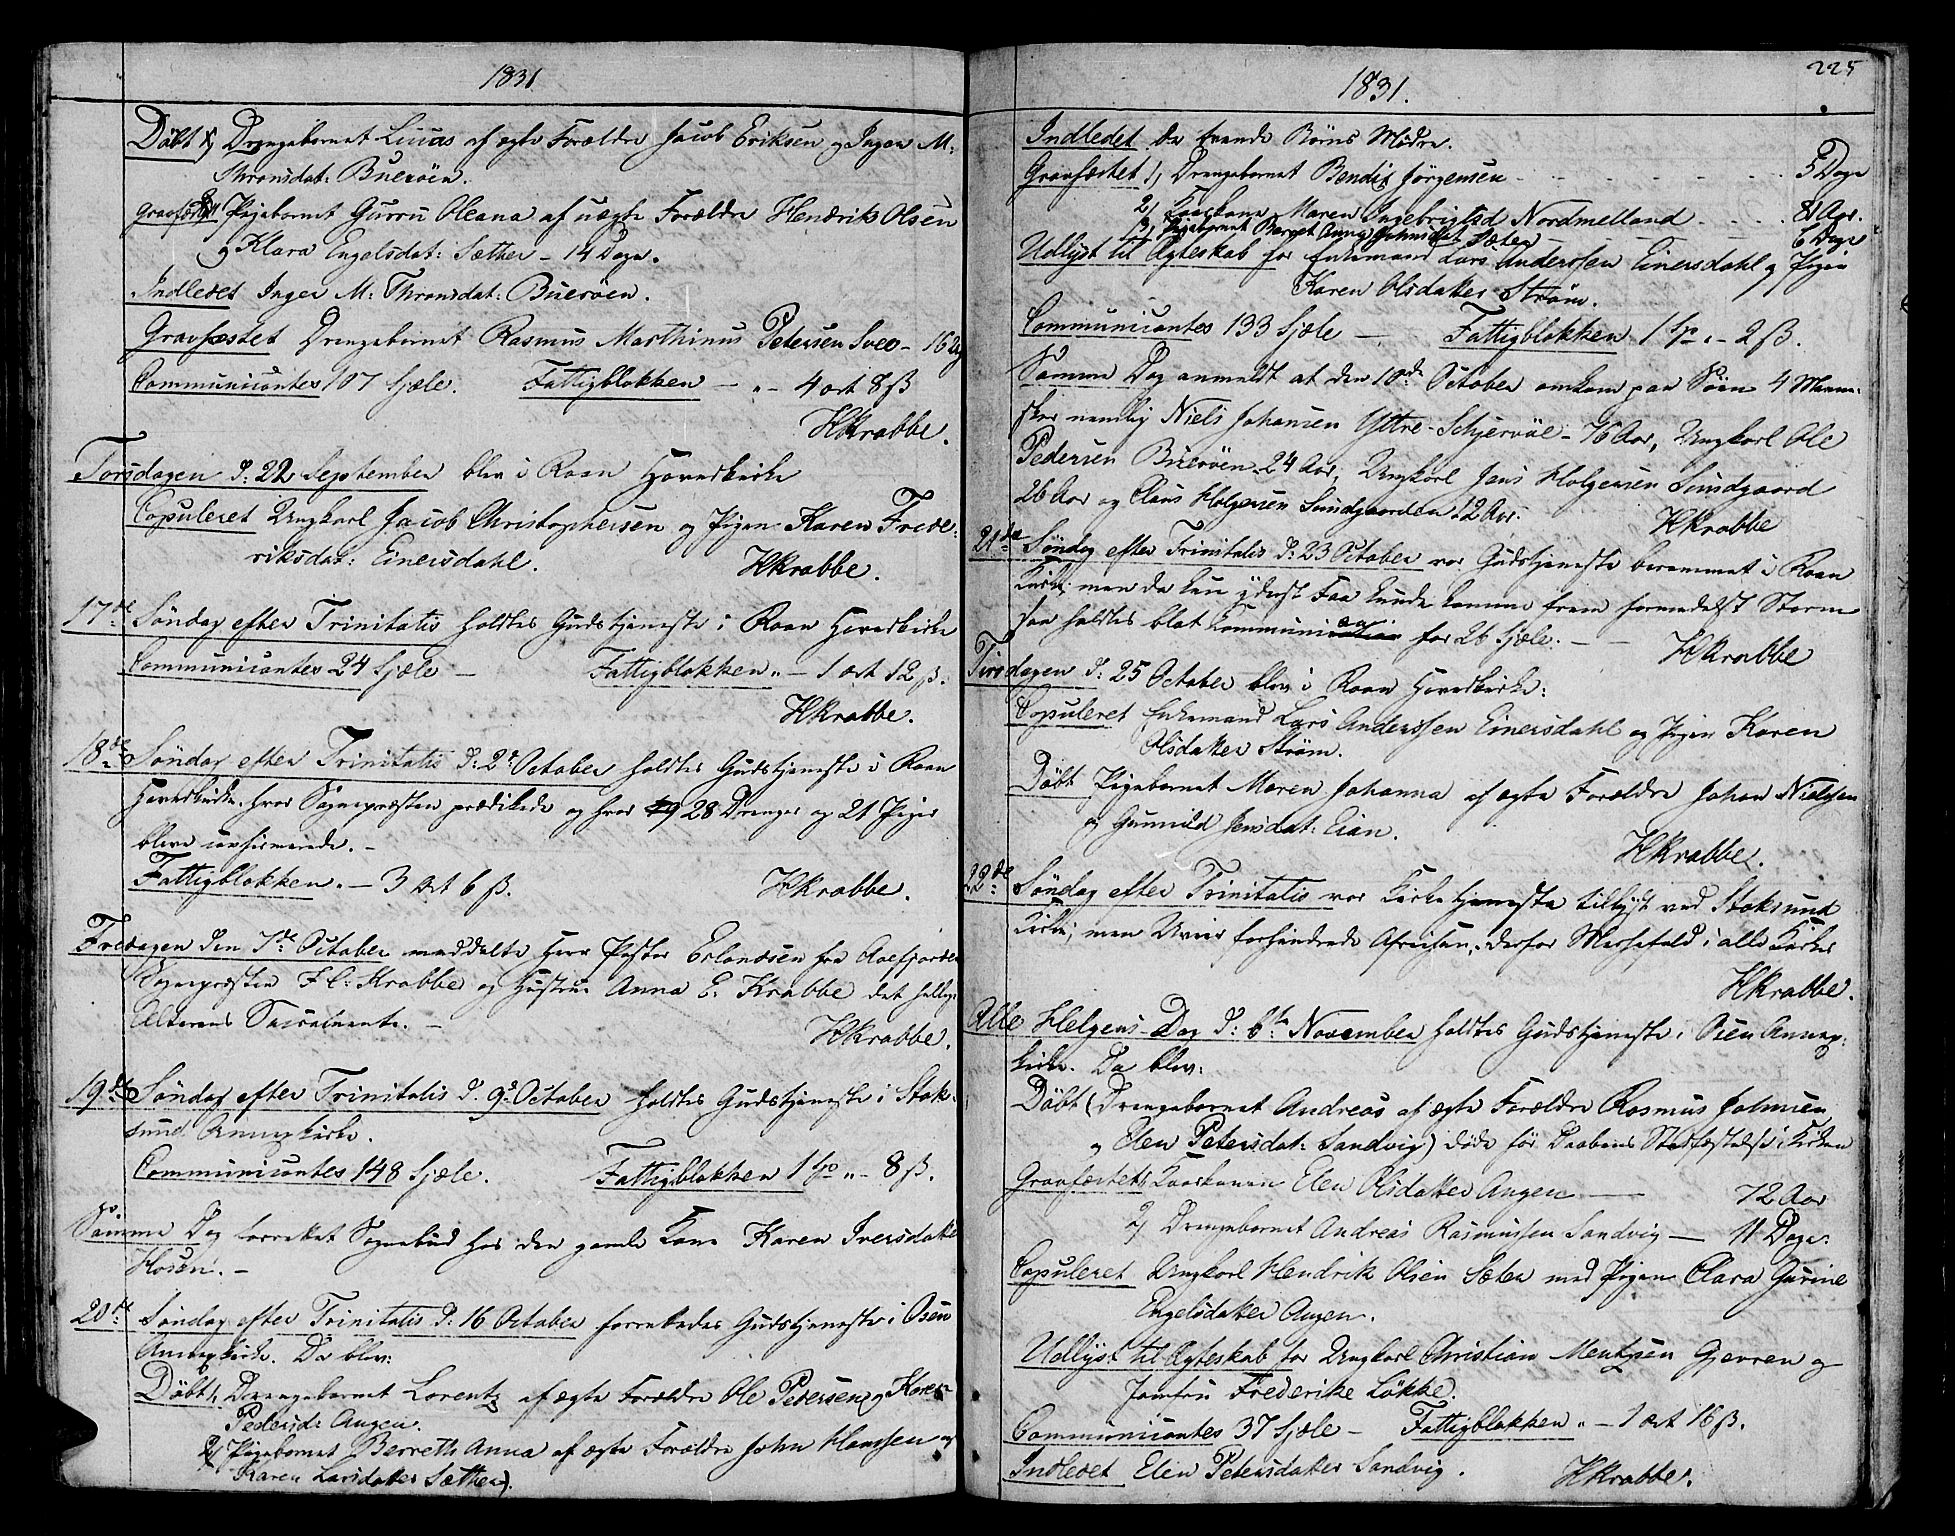 1831
Döbt 1, Drengebarnet Lucas af ægte Forældre Jacob Eriksen og Inger M:
Thronsdat: Bueröen.
2, Pigebarnet Gurru Oleana af uægte Forældre Hendrik Olsen
og Klara Engelsdat: Sæther - 14 Dage.
Indledet Inger M: Thronsdat: Bueröen.
Gravfæstet Drengebarnet Rasmus Marthinus Petersen Sveo - 16
Communicantes 107 Sjæle. Fattigblokken - " - 4 ort 8 ß
HKrabbe.
Torsdagen d: 22 September blev i Roan Hovedkirke
Copuleret Ungkarl Jacob Christophersen og Pigen Karen Frede-
riksdat: Einersdahl. HKrabbe.
17de Söndag efter Trinitatis holdtes Gudstjeneste i Roan Hovedkirke
Communicantes 24 Sjæle - Fattigblokken " - 1 ort 12 ß.
HKrabbe.
18de Söndag efter Trinitatis d: 2d October holdtes Gudstjeneste i Roan
Hovedkirke, hvor Sognepræsten prædikede og hvor 28 Drenge og 21 Piger
bleve confirmerede. -
Fattigblokken. - 3 ort 6 ß. HKrabbe.
Fredagen den 7de October meddelte Herr Pastor Erlandsen fra Aaefjorden
Sognepræsten F C: Krabbe og Hustrue Anna E. Krabbe det hellige
Alterens Sacramente. -
HKrabbe.
19de Söndag efter Trinitatis d. 9d October holdtes Gudstjeneste i Stok-
sund Annexkirke.
Communicantes 148 Sjæle. Fattigblokken 1 Sp " - 8 ß.
Samme Dag forrettet Sognebud hos den gamle Kone Karen Iversdatter
Hosen. -
20de Söndag efter Trinitatis d: 16 October forrettedes Gudstjeneste i Osen
Annexkirke. Da blev:
Döbt 1, Drengebarnet Lorentz af ægte Forældre Ole Petersen og Karen
Pedersd: Angen.
2, Pigebarnet Berreth Anna af ægte Forældre John Hanssen og
Karen Larsdatter Sæther).
1831.
225
Indledet de tvende Börns Mödre.
Gravfæstet 1, Drengebarnet Bendix Jörgensen - - - 5 Dage
2, Kaarkone Maren Ingebrigtsd Nordmelland - - - 81 Aar.
3, Pigebarnet Berret Anna Johnsdat: Sæter - - - 6 Dage
Udlyst til Ægteskab for Enkemand Lars Anderssen Einersdahl og Pigen
Karen Olsdatter Ström.
Communicantes 133 Sjæle - Fattigblokken 1 Sp " - 2 ß.
Samme Dag anmeldt at den 10de October omkom paa Söen 4 Menne-
sker nemlig Niels Johansen Yttre-Schjervöe - 76 Aar, Ungkarl Ole
Pedersen Bueröen - 24 Aar, Ungkarl Jens Holgersen Sundgaard
26 Aar og Claus Holgersen Sundgaarden 12 Aar. HKrabbe
21de Söndag efter Trinitatis d: 23 October var Gudstjeneste berammet i Roan
Kirke; men da kun yderst Faa kunde komme frem formedelst Storm
saa holdtes blot Communion for 26 Sjæle. - - HKrabbe
Tirsdagen d: 25 October blev i Roan Hovedkirke:
Copuleret Enkemand Lars Anderssen Einersdahl og Pigen Karen
Olsdatter Ström.
Döbt Pigebarnet Maren Johanna af ægte Forældre Johan Nielssen
og Gunnild Jensdat: Eian.
HKrabbe.
22de Söndag efter Trinitatis var Kirketjeneste tillyst ved Stoksund
Kirke; men Uveir forhindrede Afreisen; derfor Messefald i alle Kirker
HKrabbe.
Alle Helgens-Dag d: 6te November holdtes Gudstjeneste i Osen Annex-
kirke. Da blev:
Döbt (Drengebarnet Andreas af ægte Forældre Rasmus Johnsen
og Elen Petersdat: Sandvig) döde för Daabens Stadfæstelse i Kirken
Gravfæstet 1, Kaarkonen Elen Olsdatter Angen - 72 Aar
2, Drengebarnet Andreas Rasmussen Sandvig - 11 Dage.
Copuleret Ungkarl Hendrik Olsen Sæter med Pigen Clara Gurine
Engelsdatter Angen.
Udlyst til Ægteskab for Ungkarl Christian Mentzsen Gjevren og
Jomfru Frederike Lökke.
Communicantes 37 Sjæle - Fattigblokken " - 1 ort 16 ß.
Indledet Elen Petersdatter Sandvig. HKrabbe.